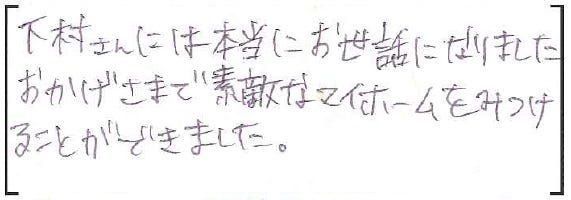 下村さんには本当にお世話になりました
おかげさまで素敵なマイホームをみつけ
ることができました。